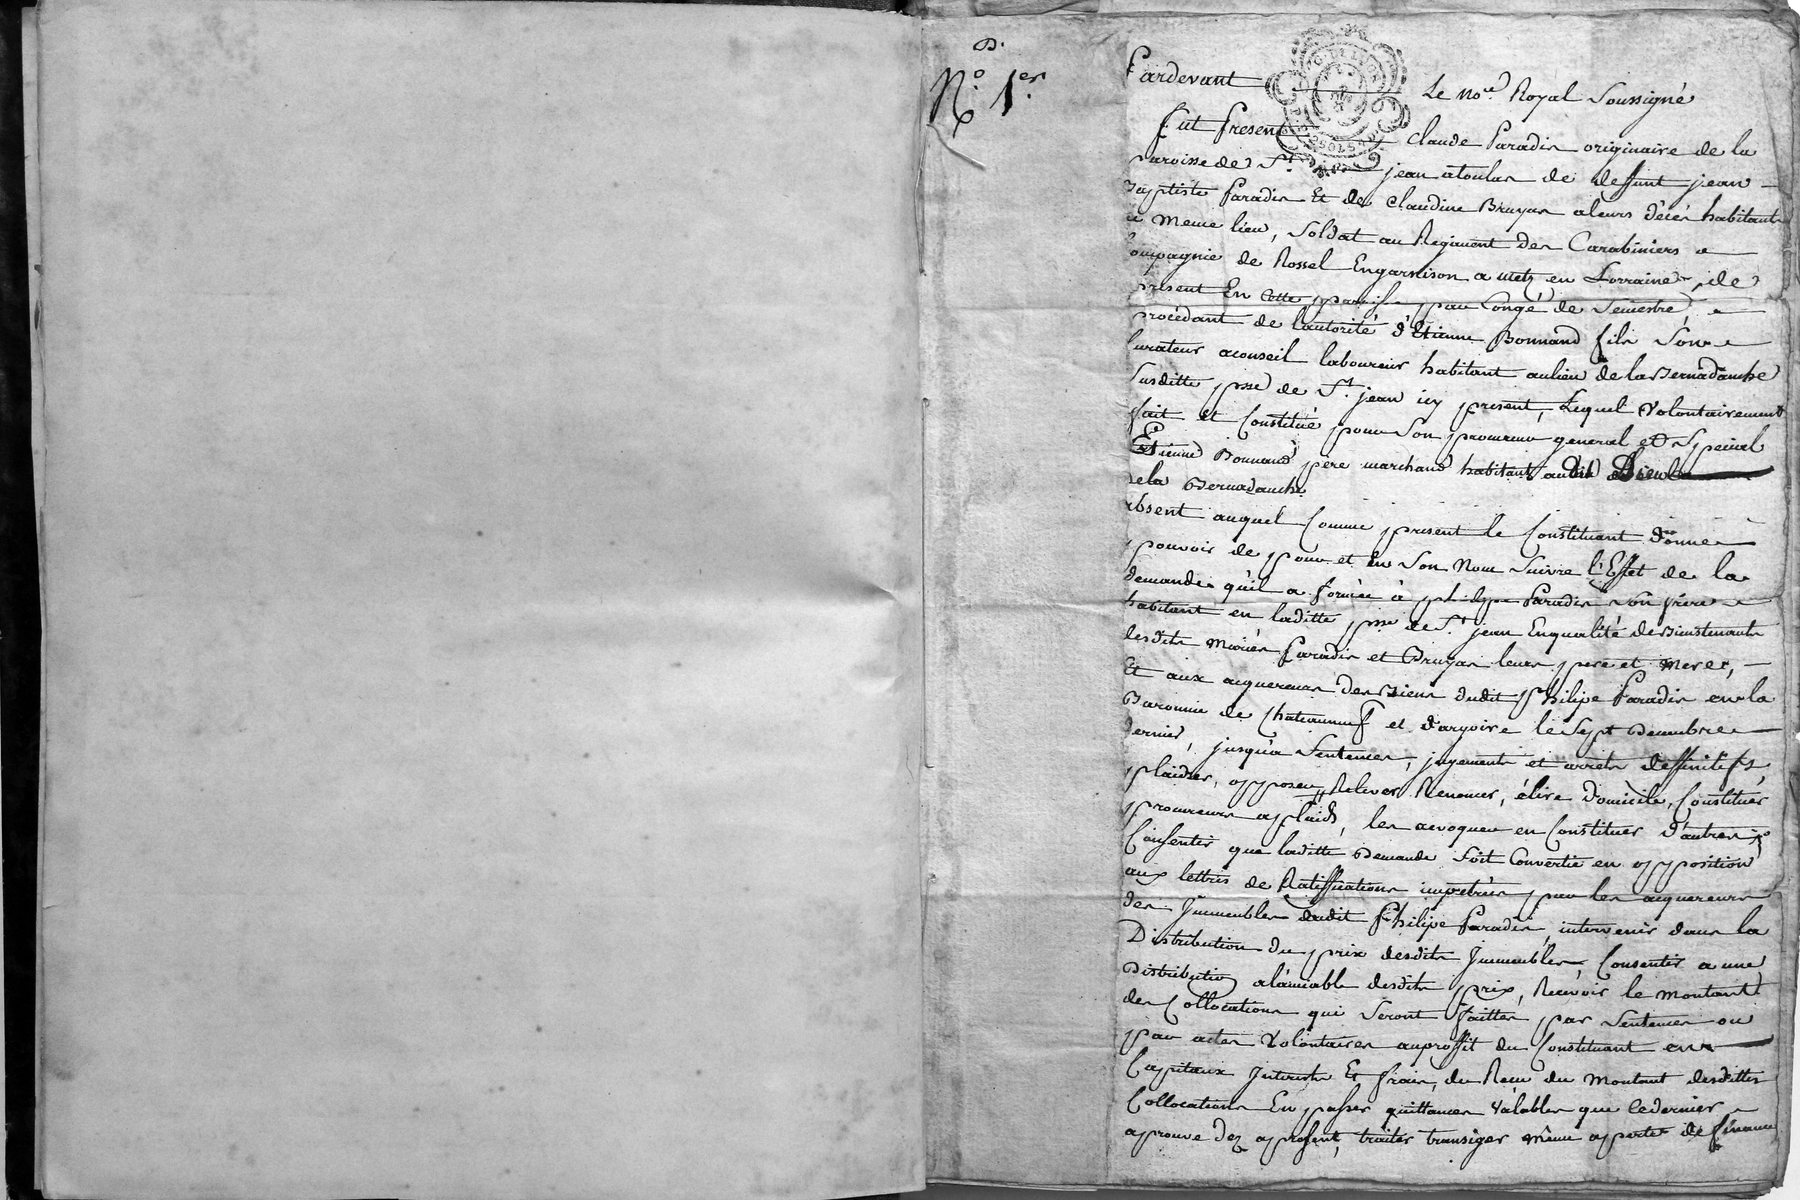 N.° 1.er
Pardevant Le no.re Royal Soussigné
fut present Claude Paradis originaire de la
paroisse de St. jean atoulas de deffunt jean
Baptiste Paradis et de Claudine Bruyas aleurs décés habitants
meme lieu, Soldat au Regiment des Carabiniers
Compagnie de Rossel Engarnison a metz en Lorraine, de
present En cette paroisse par Congé de Semestre,
procédant de lautorité d'Etienne Bonnand fils Son
Curateur aconseil laboureur habitant aulieu de la Bernadanche
Susditte psse de St. jean icy present, Lequel Volontairement
fait et Constitué pour Son procureur general et Special
Etienne Bonnand pere marchand habitant audit Lieu
dela Bernadanche
absent auquel Comme present le Constituant donne
pouvoir de pour et en Son Nom Suivre l'Effet de la
demande qu'il a formée à philippe Paradis Son frere
habitant en laditte psse de St. jean Enqualité de Bienstenants
desdits mariés Paradis et Bruyas leurs pere et mere,
Et aux acquereurs des Biens dudit Philipe Paradis en la
Baronnie de Chateauneuf et dargoire le Sept Decembre
dernier, jusqu'a Sentences, jugements et arrets deffinitifs
plaider, opposer, Relever Renoncer, élire Domicile, Constituer
procureurs aplaids, les revoquer en Constituer d'autres
Consentir que laditte Demande Soit Convertie en opposition
aux lettres de Ratiffications impetrées par les acquereurs
des Immeubles dudit Philipe Paradis, intervenir dans la
Distribution du prix desdits Immeubles Consentir a une
Distribution alamiable desdits prix, Recevoir le montant
des Collocations qui Seront faittes par Sentences ou
par actes Volontaires auproffit du Constituant en
Capitaux Interets Et frais, du Recu du montant desdittes
Collocations En passer quittances Valables que ledernier
aprouve dez apresent, traiter transiger même